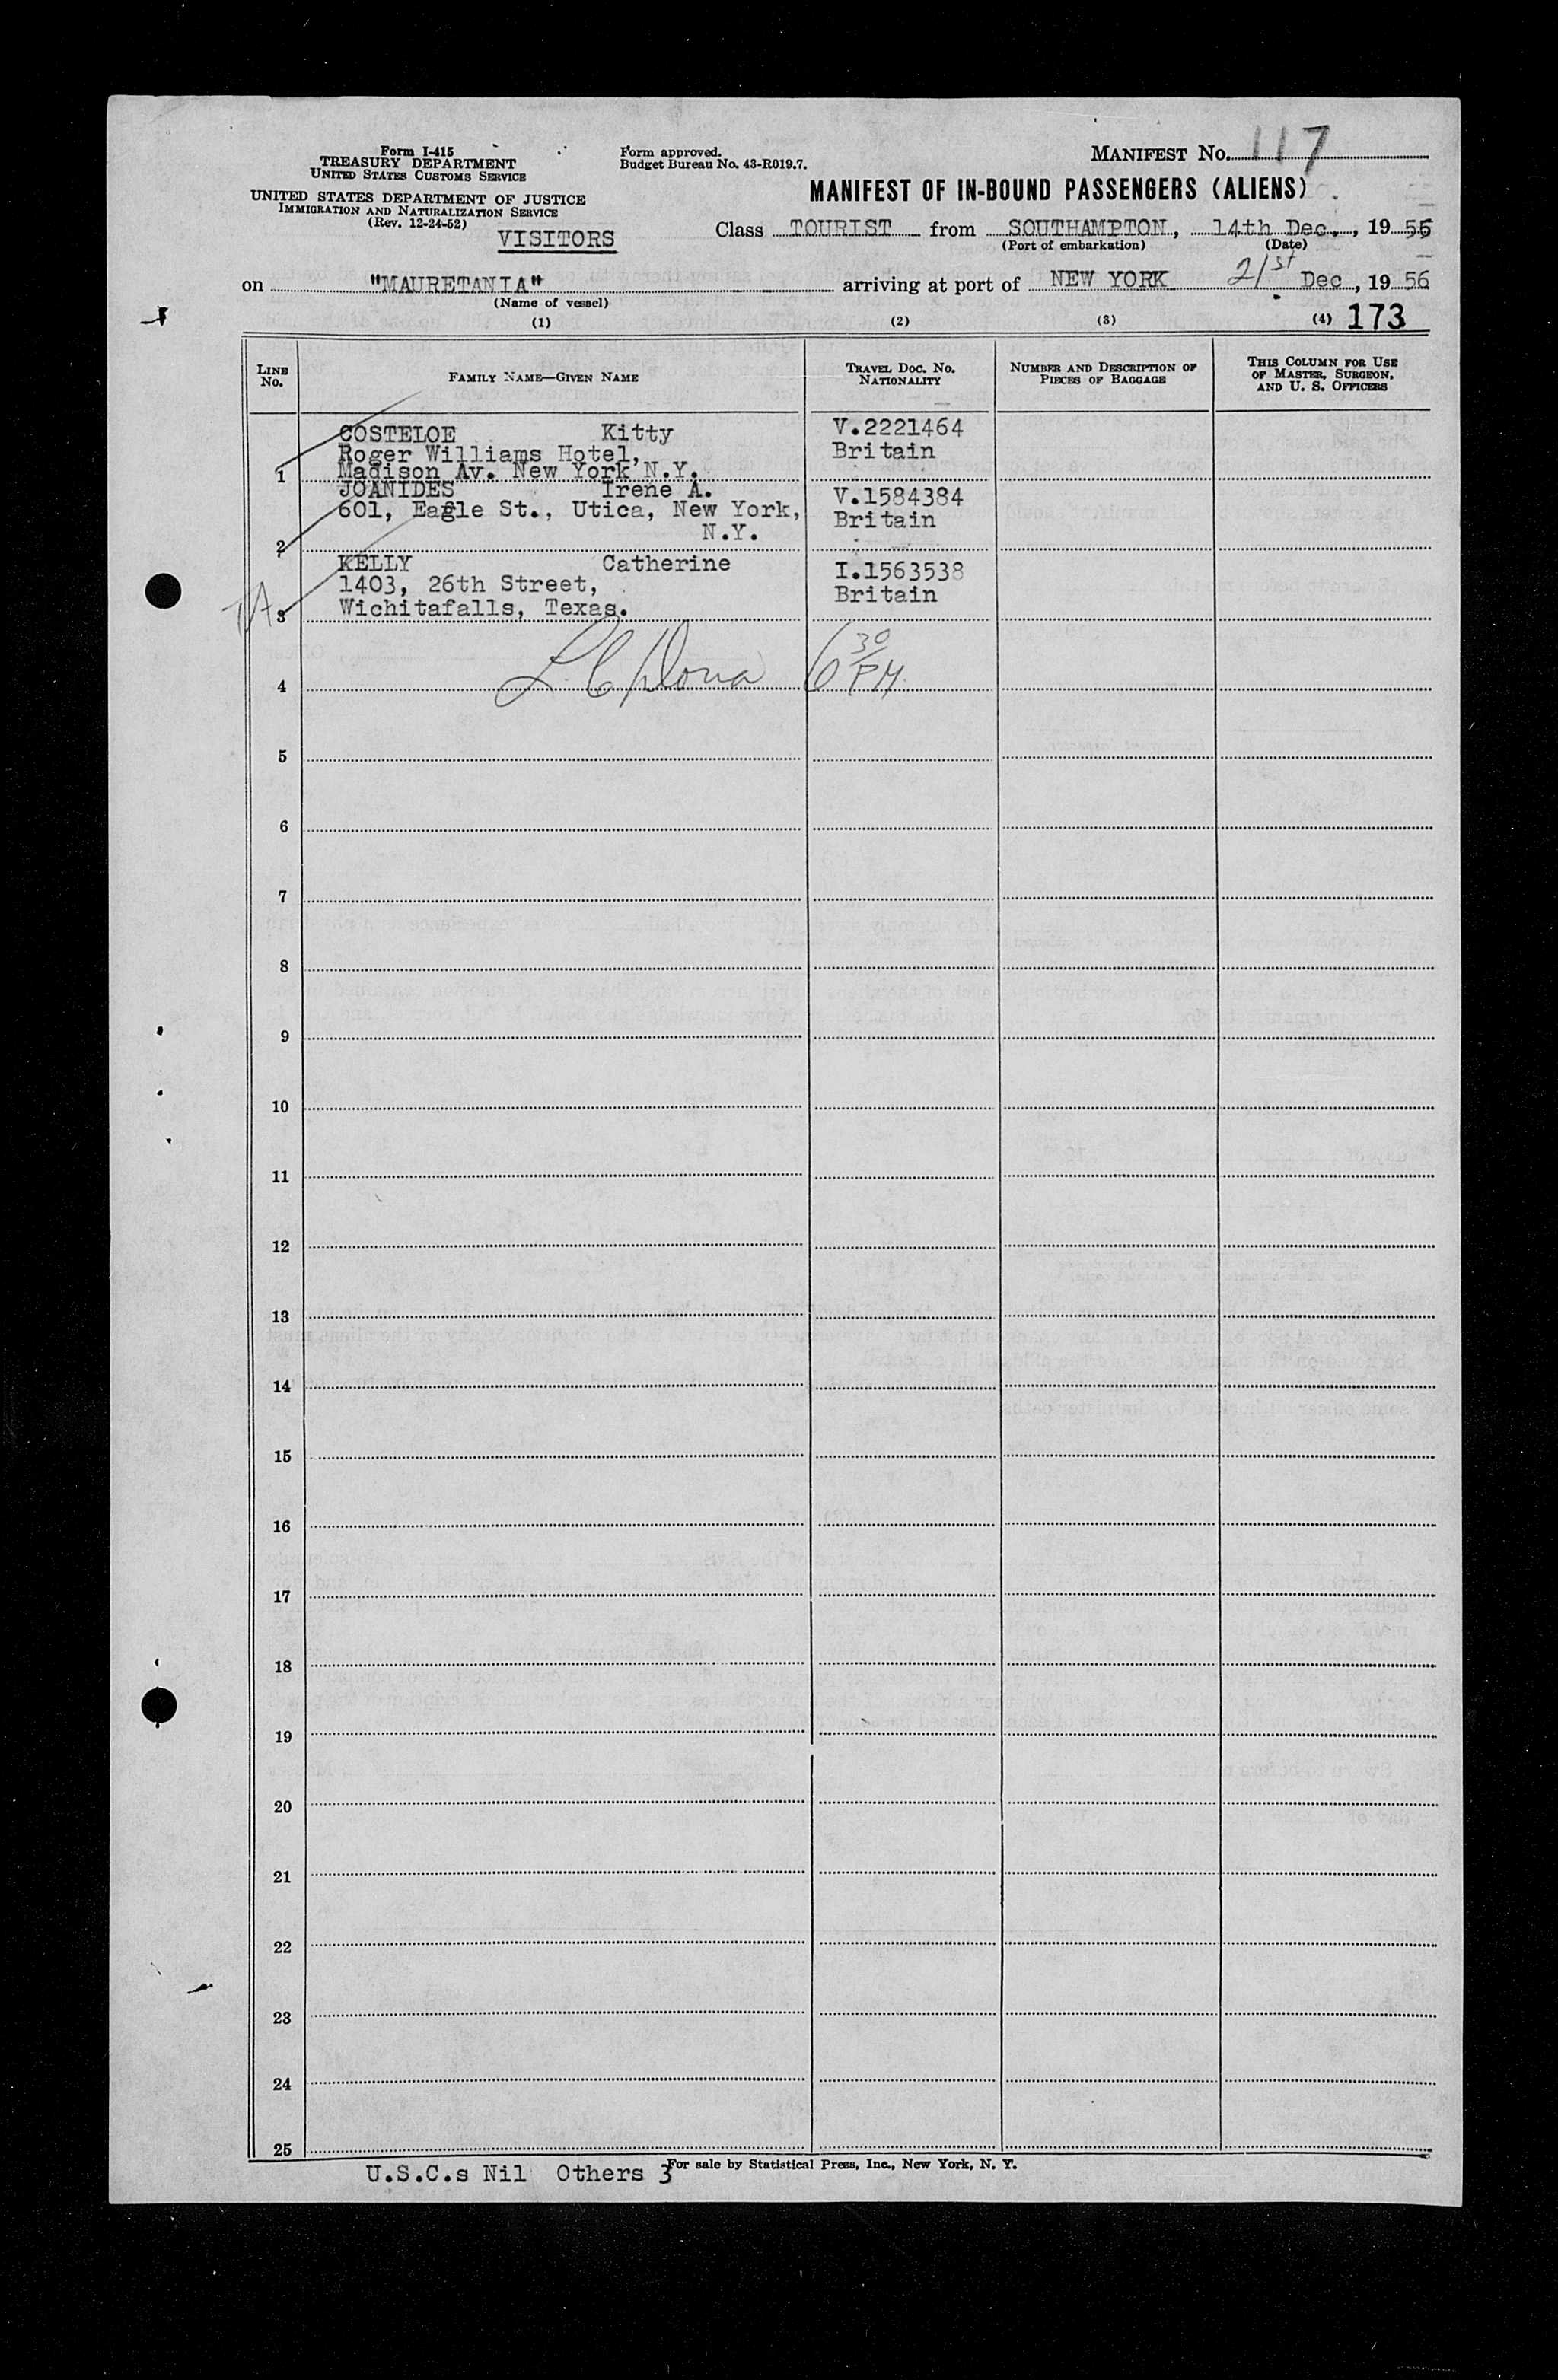 Form I-415
TREASURY DEPARTMENT
UNITED STATES CUSTOMS SERVICE
UNITED STATES DEPARTMENT OF JUSTICE
IMMIGRATION AND NATURALIZATION SERVICE
(Rev. 12-24-52)
VISITORS
Form approved.
Budget Bureau No. 43-R019.7.
MANIFEST No. 117
MANIFEST OF IN-BOUND PASSENGERS (ALIENS)
Class TOURIST from SOUTHAMPTON, 14th Dec., 19 56
(Port of embarkation) (Date)
on "MAURETANIA" arriving at port of NEW YORK 21st Dec, 19 56
(Name of vessel)
(1) (2) (3) (4) 173
LINE No. FAMILY NAME—GIVEN NAME TRAVEL DOC. No. NATIONALITY NUMBER AND DESCRIPTION OF PIECES OF BAGGAGE THIS COLUMN FOR USE OF MASTER, SURGEON, AND U. S. OFFICERS
COSTELOE Kitty V.2221464
Roger Williams Hotel, Britain
1 Madison Av. New York N.Y.
JOANIDES Irene A. V.1584384
601, Eagle St., Utica, New York, Britain
2 N.Y.
KELLY Catherine I.1563538
1403, 26th Street, Britain
3 Wichitafalls, Texas.
4 6 30 PM
5
6
7
8
9
10
11
12
13
14
15
16
17
18
19
20
21
22
23
24
25
For sale by Statistical Press, Inc., New York, N. Y.
U.S.C.s Nil Others 3